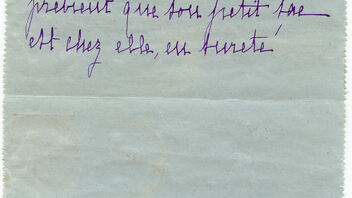 prévient que ton petit sac
est chez elle, en sureté